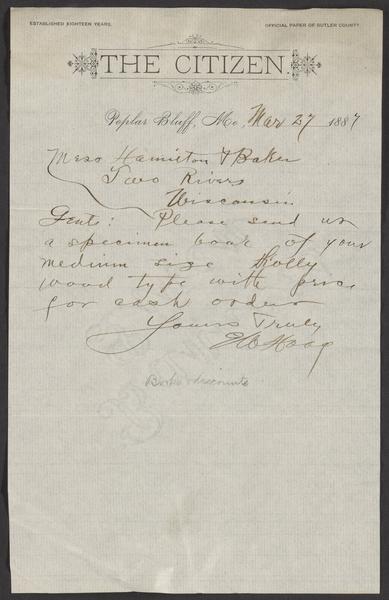 ESTABLISHED EIGHTEEN YEARS.
OFFICIAL PAPER OF BUTLER COUNTY.
THE CITIZEN.
Poplar Bluff, Mo, Mar 27 1887
Mess Hamilton & Baker
Two Rivers
Wisconsin
Gents: Please send us
a specimen book of your
medium size Holly
wood type with prices
for cash orders
Yours Truly
Books & discounts